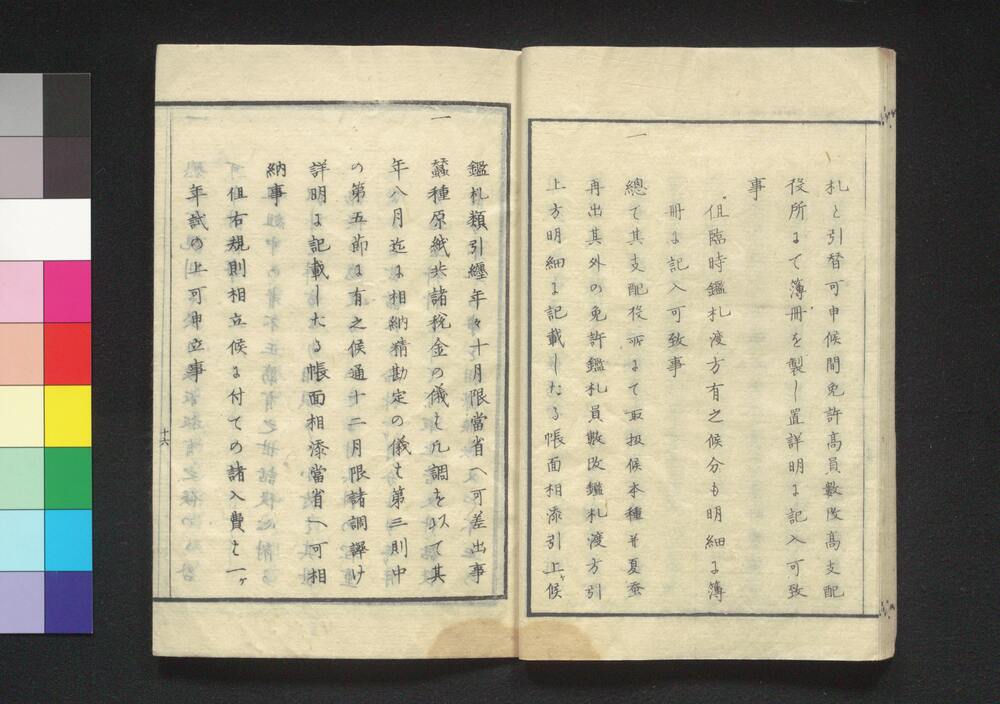 札と引替可申候間免許高員數改高支配
役所ニて簿冊を製し置詳明ニ記入可致
事
但臨時鑑札渡方有之候分も明細ニ簿
冊ニ記入可致事
一
總て其支配役所ニて取扱候本種并夏蚕
再出其外の免許鑑札員數改鑑札渡方引
上方明細ニ記載したる帳面相添引上ヶ候
鑑札類引纏年々十月限當省へ可差出事
一
蠶種原紙共諸税金の儀は凡調を以て其
年八月迄ニ相納精勘定の儀は第三則中
の第五節ニ有之候通十二月限諸調譯け
詳明ニ記載したる帳面相添當省へ可相
納事
但右規則相立候ニ付ての諸入費は一ヶ
年試の上可申立事
十六